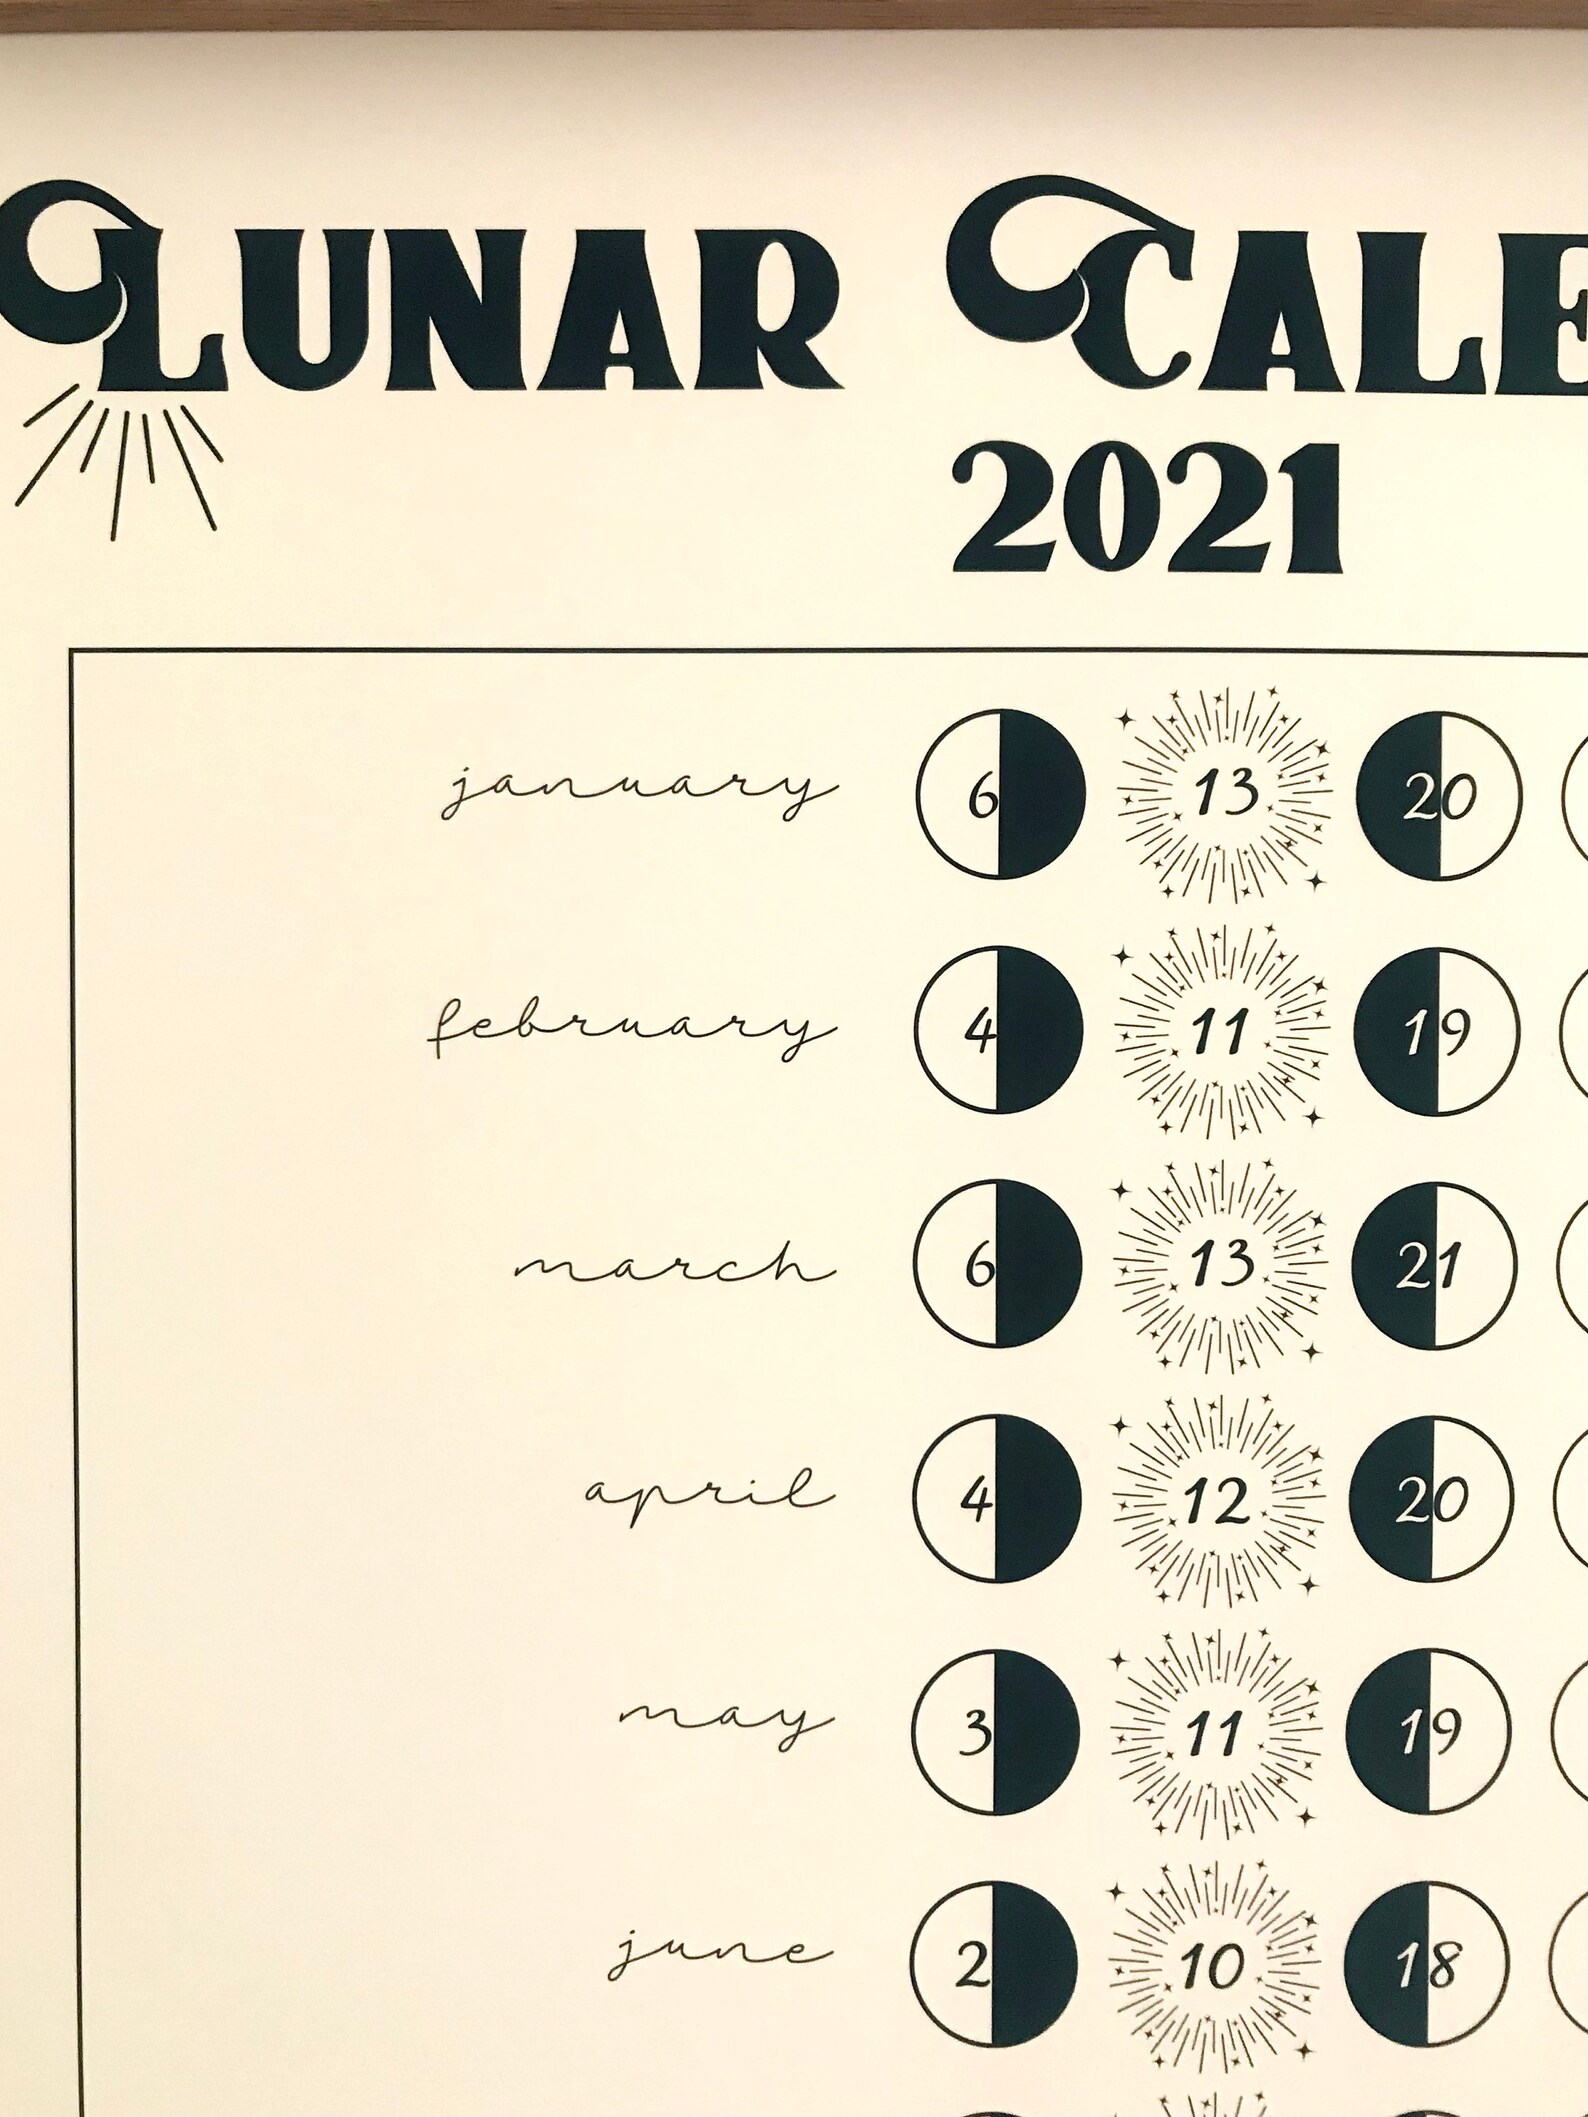 LUNAR CALE
2021
january 6 13 20
february 4 11 19
march 6 13 21
april 4 12 20
may 3 11 19
june 2 10 18